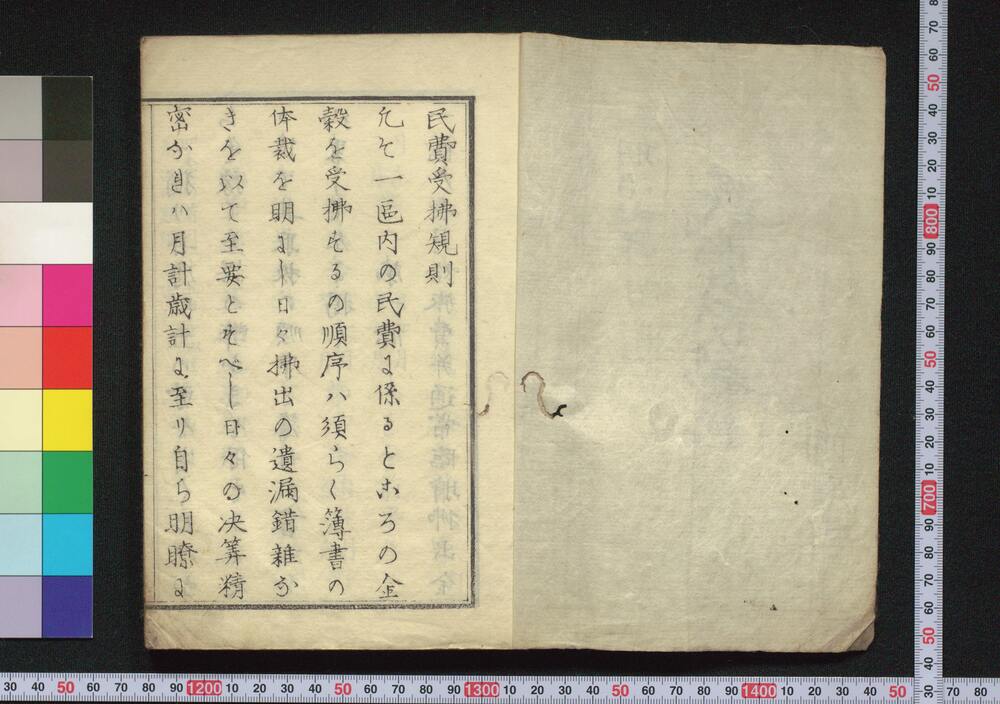 民費受拂規則
凡そ一區内の民費に係るところの金
穀を受拂するの順序ハ須らく簿書の
体裁を明にし日々拂出の遺漏錯雜な
きを以て至要とすべし日々の决筭精
密なれハ月計歳計に至り自ら明瞭に
30 40 50 60 70 80 90 1200 10 20 30 40 50 60 70 80 90 1300 10 20 30 40 50 60 70 80 90 1400 10 20 30 40 50
70 80
70 60 50 40 30 20 10 800 90 80 70 60 50 40 30 20 10 700 90 80 70 60 50 40 30